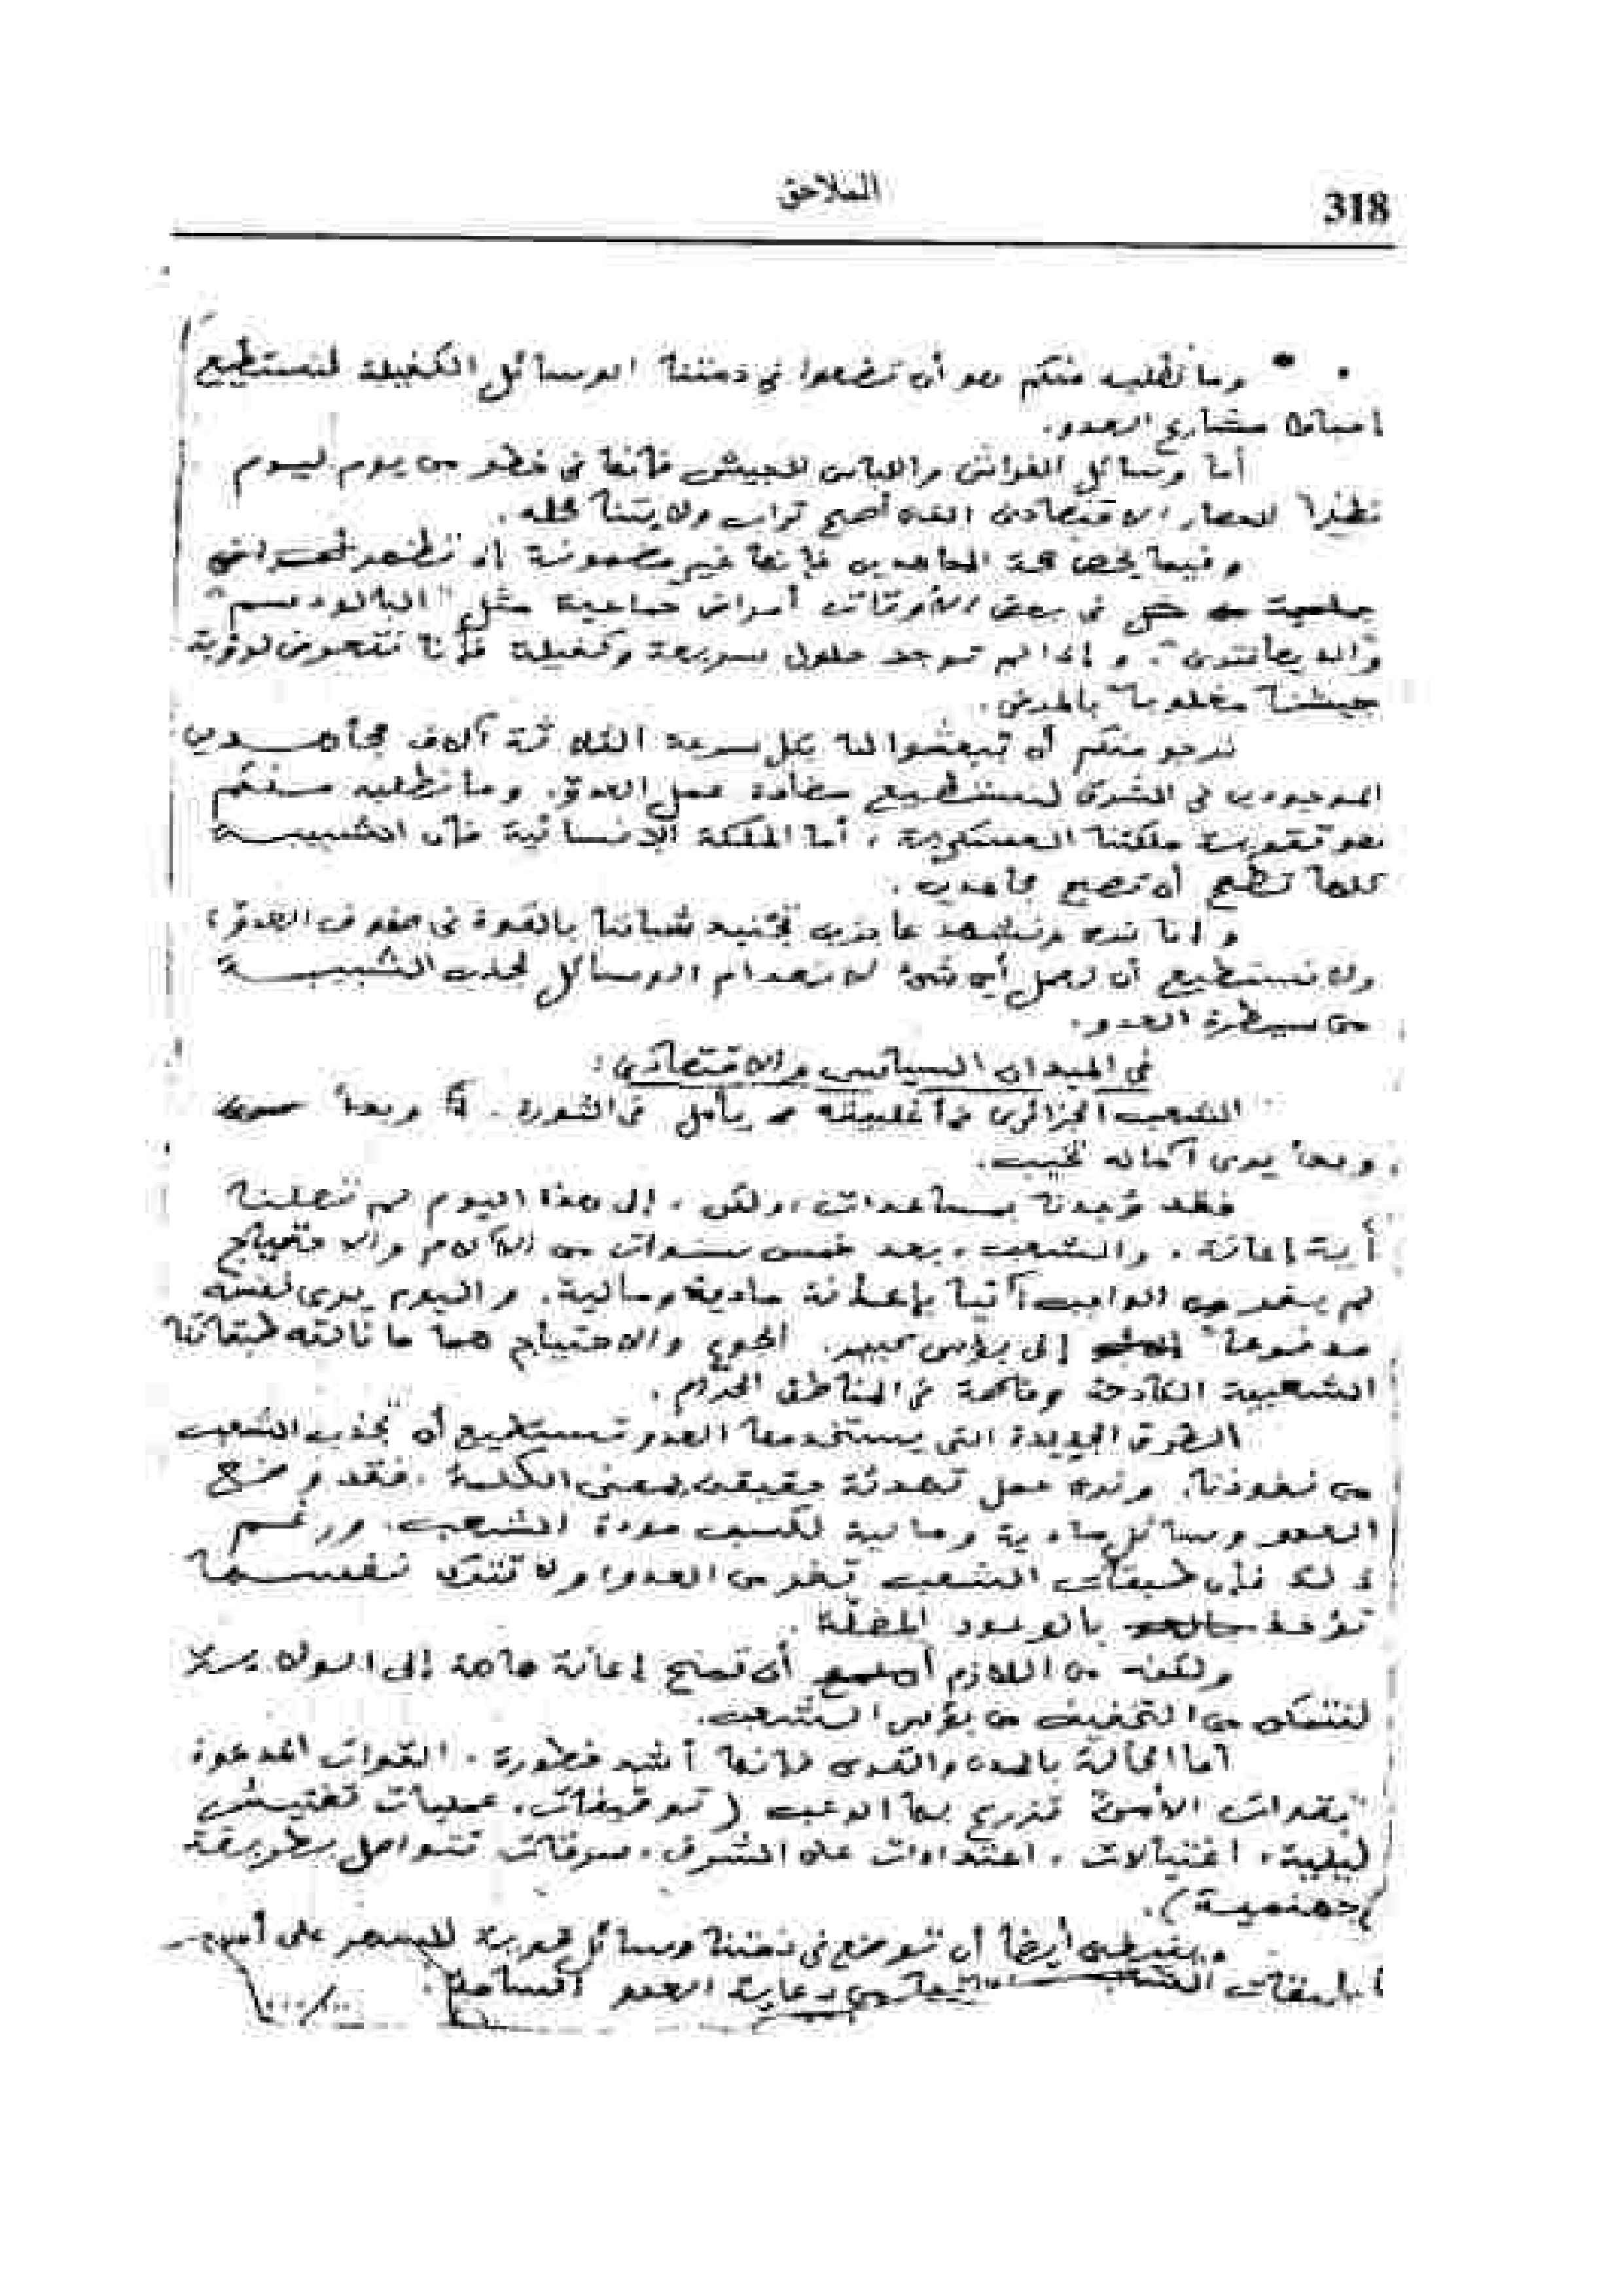 318
الملاحق
وما نطلبه منكم هو أن تضعوا في ذمتنا الوسائل الكفيلة لنستطيع
إحباط مشاريع العدو.
أما وسائل الفراش واللباس للجيش فإنها في خطر من يوم ليوم
نظرا للحصار الاقتصادي الذي أصبح تراب ولايتنا محله.
وفيما يخص صحة المجاهدين فإنها غير مضمونة إذ تظهر
في بعض الأوقات أمراض جماعية مثل "البالوديسم"
و. وإذا لم توجد حلول سريعة وكفيلة فإننا نتعرض لرؤية
جيشنا مغلوبا بالمرض.
نرجو منكم أن تبعثوا لنا بكل سرعة الثلاثة آلاف مجاهدين
الموجودين في الشرق لنستطيع مضادة عمل العدو. وما نطلبه منكم
هو تقوية ملكتنا العسكرية، أما الملكة الإنسانية فإن الشبيبة
كلها تطمح أن تصبح مجاهدين.
وإننا نرى ونشاهد عاجزين تجنيد شبابنا بالقوة في صفوف العدو،
ولا نستطيع أن نعمل أي شيء لانعدام الوسائل لجذب الشبيبة
من سيطرة العدو.
في الميدان السياسي والاقتصادي:
الشعب الجزائري في أغلبيته يأمل في الثورة. وبدأ
وبدأ يرى آماله تخيب.
فقد وعدنا بمساعدات، ولكن، إلى هذا اليوم لم تصلنا
أية إعانة. والشعب، بعد خمس سنوات من الآلام والاحتياج
لم يفر من الواجب آتيا بإعانة مادية ومالية. واليوم يرى نفسه
مدفوعا إلى بؤس كبير. الجوع والاحتياج هما ما نالته طبقاتنا
الشعبية الكادحة وخاصة في المناطق الحرام.
الطرق الجديدة التي يستخدمها العدو تستطيع أن تجذب الشعب
من نفوذنا. ونرى عمل تهدئة حقيقي بمعنى الكلمة. فقد وضع
العدو وسائل مادية ومالية لكسب مودة الشعب. ورغم
ذلك فإن طبقات الشعب تفر من العدو، ولا تترك نفسها
تؤخذ بالوعود المضلة.
ولكنه من اللازم أن تمنح إعانة هامة إلى
لنتمكن من التخفيف من بؤس الشعب.
أما الحالة بالمدن والقرى فإنها أشد خطورة. القوات المدعوة
"بقوات الأمن" تزرع بها الرعب (توقيفات، عمليات تفتيش
ليلية، اغتيالات، اعتداءات على الشرف، سرقات تتواصل بطريقة
جهنمية).
أيضا أن توضع في ذمتنا وسائل قوية للسهر على
طبقات من دعاية العدو
.../...